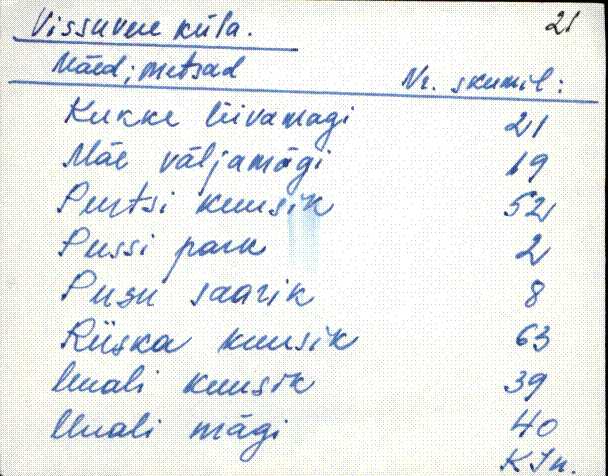 Vissuvere küla. 21
Mäed; metsad Nr. skeemil:
Kukke liivamägi 21
Mäe väljamägi 19
Purtsi kuusik 52
Pussi park 2
Pusu saarik 8
Riiska kuusik 63
Uuali kuusik 39
Uuali mägi 40